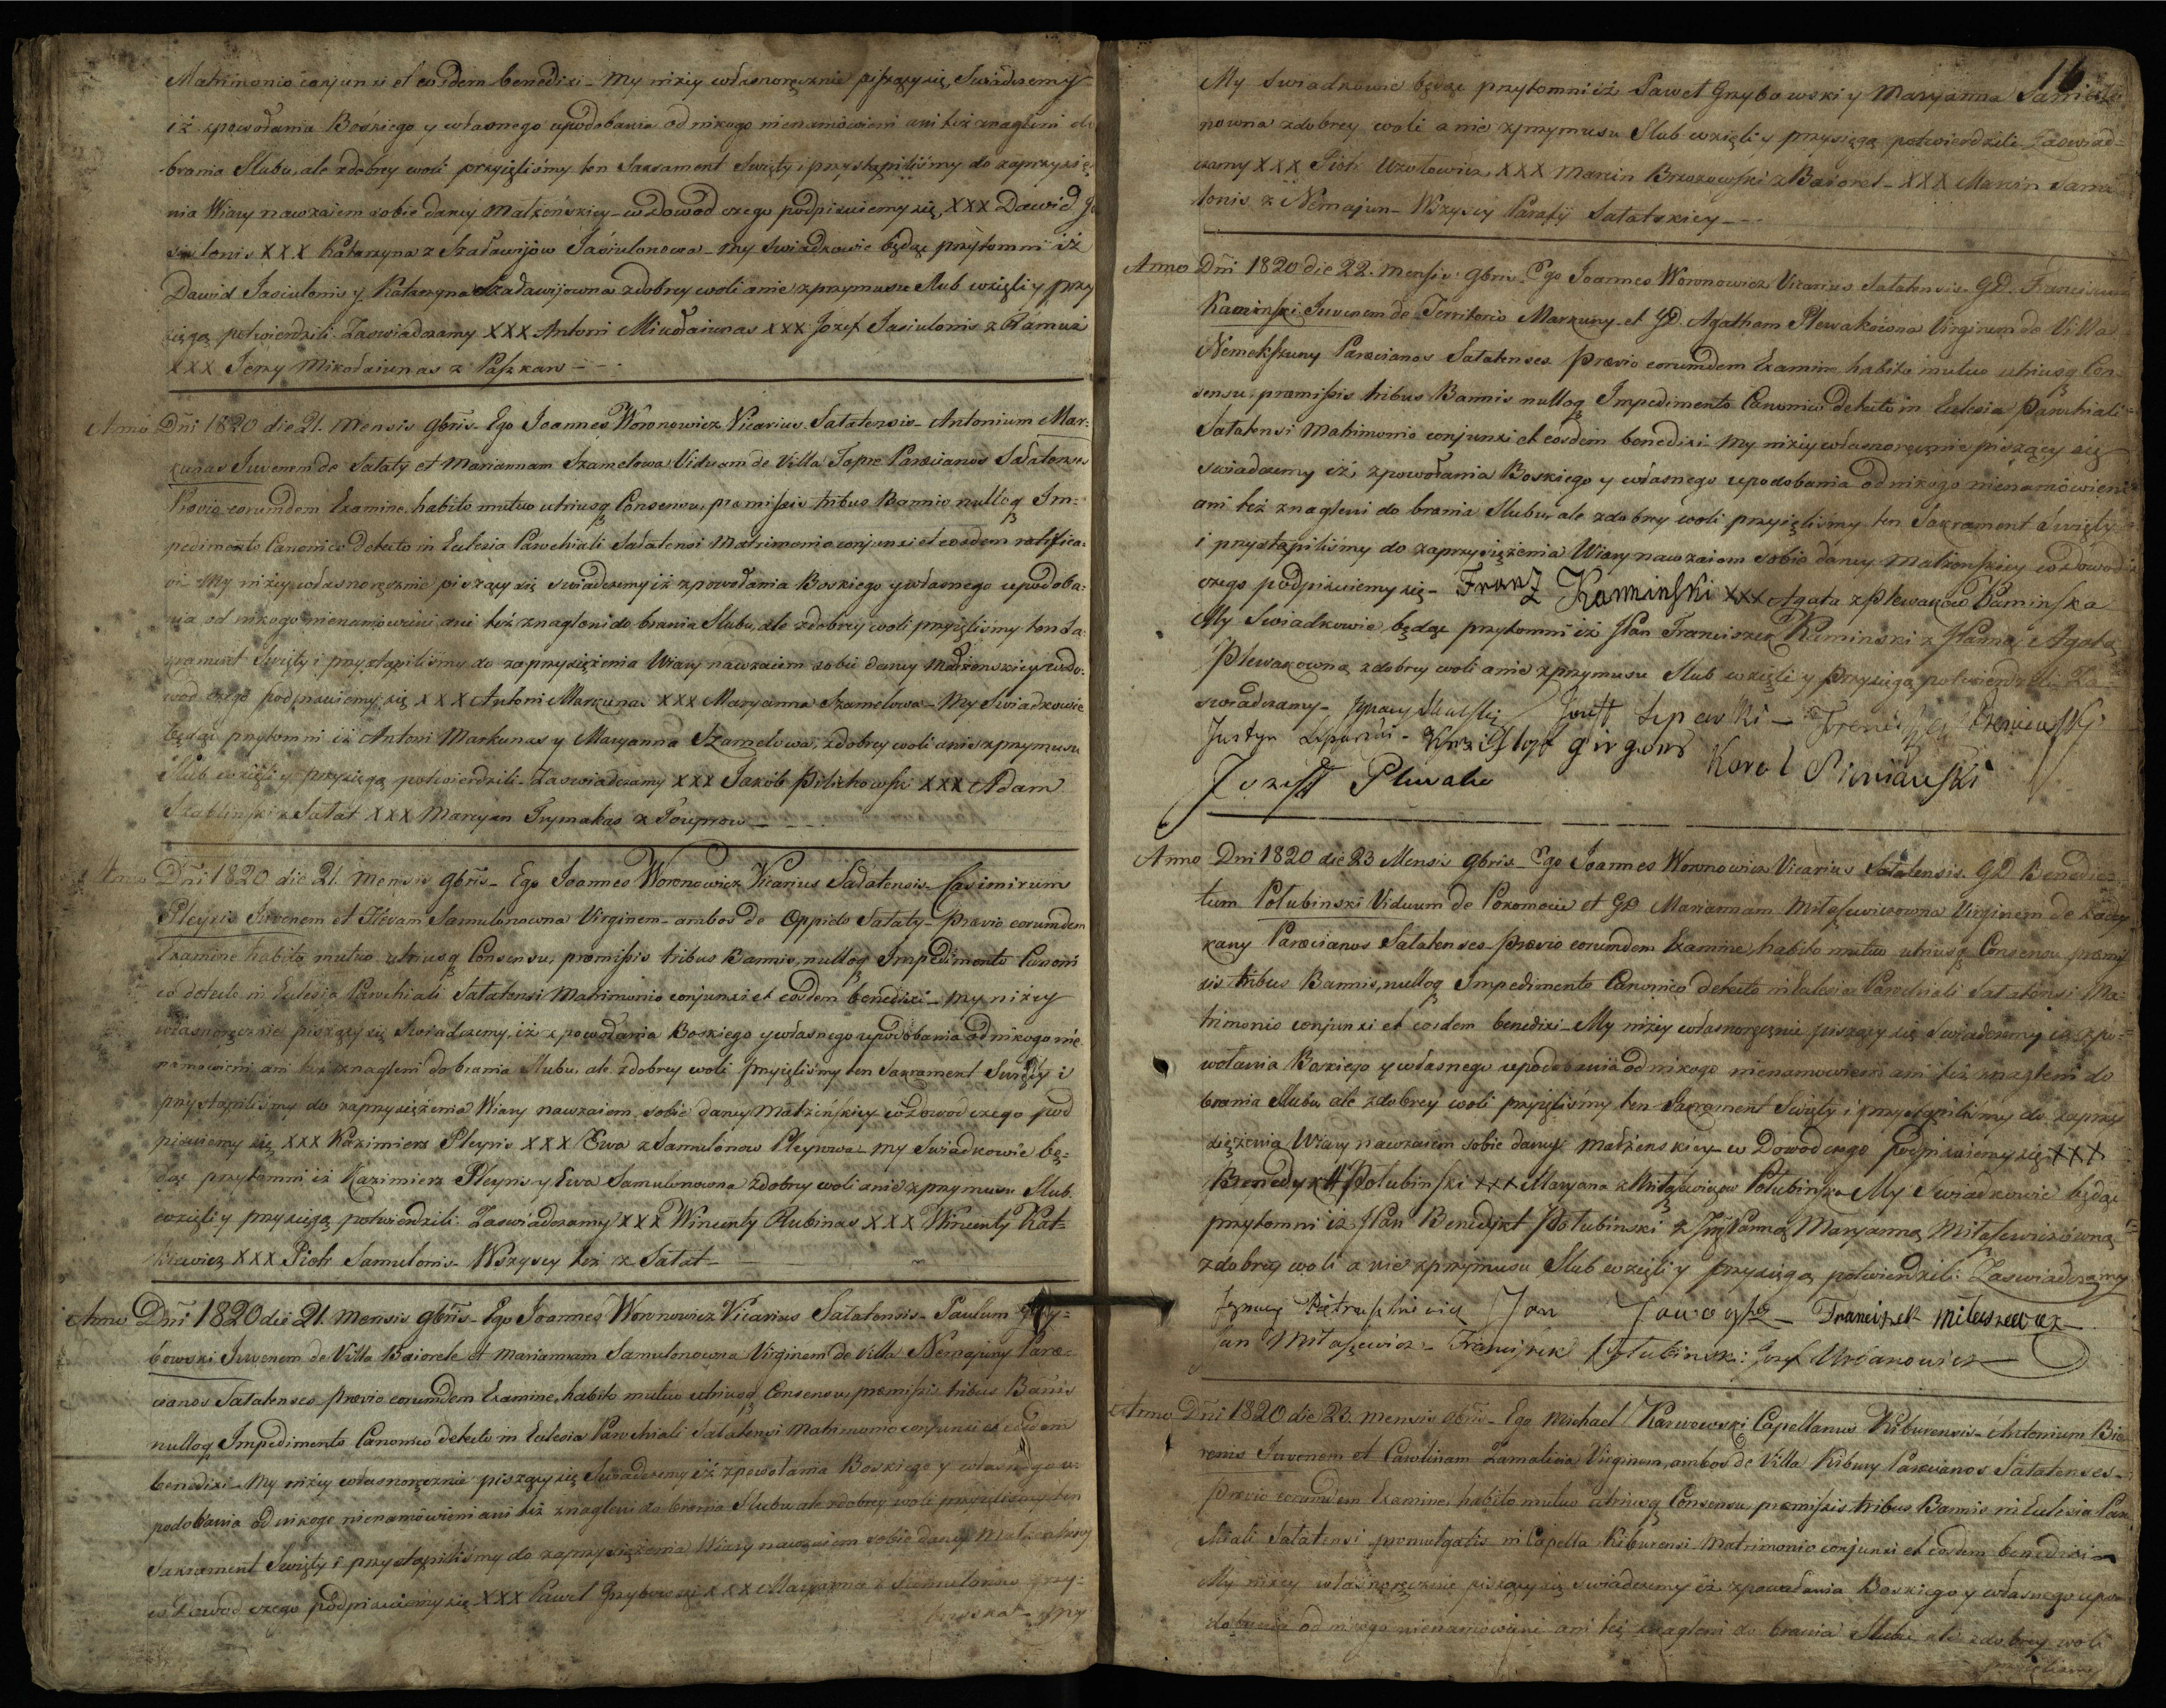 Matrimonio conjunxi et eosdem benedixi - My niżey własnoręcznie piszący się, Swiadczemy
iż zpowołania Boskiego y własnego upodobania od nikogo nienamówieni ani też znagleni do
brania Slubu, ale zdobrey woli przyięliśmy ten Sakrament Swięty i przystąpiliśmy do zaprzysię
nia Wiary nawzaiem sobie daney Małżenskiey - w dowod czego podpisuiemy się, XXX Dawid
siulonis XXX Katarzyna z Szaławijów Jasiulonowa - My Swiadkowie będąc przytomni iż
Dawid Jasiulonis y Katarzyna Szaławijowna zdobrey woli a nie zprzymusu Slub wzięli y przy
sięgą potwierdzili. Zaswiadczamy XXX Antoni Mikołaiunas XXX Jozef Jasiulonis z
XXX Jerzy Mikołaiunas z Paszkan - - -
Anno Dñi 1820 die 21. Mensis 9bris - Ego Joannes Woronowicz Vicarius Satatensis - Antonium Mar=
kunas Juvenem de Sataty et Mariannam Szamelowa Viduam de Villa Toprē Parœcianos Satatenses
Prævio eorumdem Examine, habito mutuo utriusq Consensu, præmissis tribus Bannis nulloq Im=
pedimento Canonico detecto in Eclesia Parochiali Satatensi Matrimonio conjunxi et eosdem ratifica=
vi My niżey własnoręcznie piszący się swiadczemy iż zpowołania Boskiego y własnego upodoba=
nia od nikogo nienamówieni, ani też znagleni do brania Slubu, ale zdobrey woli przyięliśmy ten Sa=
krament Swięty i przystąpiliśmy do zaprzysiężenia Wiary nawzaiem sobie daney Małżenskiey wdo=
wod czego podpisuiemy się XXX Antoni Markunas XXX Maryanna Szamelowa - My Swiadkowie
będąc przytomni iż Antoni Markunas y Maryanna Szamelowa, zdobrey woli a nie zprzymusu
Slub wzięli y przysięgą potwierdzili - Zaswiadczamy XXX Jakób Pilichowski XXX Adam
Szabliński z Satat XXX Marcyan Trymakas z
Anno Dñi 1820 die 21. Mensis 9bris - Ego Joannes Woronowicz Vicarius Satatensis - Casimirum
Pleynis Juvenem et Hevam Samulonowna Virginem - ambos de Oppido Sataty - Prævio eorumdem
Examine habito mutuo utriusq Consensu, præmissis tribus Bannis, nulloq Impedimento Canoni
co detecto in Eclesia Parochiali Satatensi Matrimonio conjunxi et eosdem benedixi - My niżey
własnoręcznie piszący się Swiadczemy, iż zpowołania Boskiego y własnego upodobania od nikogo nie
namowieni ani też znagleni do brania Slubu, ale zdobrey woli przyięliśmy ten Sakrament Swięty i
przystąpiliśmy do zaprzysiężenia Wiary nawzaiem sobie daney Małżeńskiey w dowod czego pod
pisuiemy się XXX Kazimierz Pleynis XXX Ewa z Samulonow Pleynowa - My Swiadkowie bę=
dąc przytomni iż Kazimierz Pleynis y Ewa Samulonowna zdobrey woli a nie zprzymusu Slub
wzięli y przysięgą potwierdzili. Zaswiadczamy XXX Wincenty Rubinas XXX Wincenty Rat=
kiewicz XXX Piotr Samulonis - Wszyscy też z Satat -
Anno Dñi 1820 die 21. Mensis 9bris - Ego Joannes Woronowicz Vicarius Satatensis - Paulum Grzy=
bowski Juvenem de Villa Baiorele et Mariannam Samulonowna Virginem de Villa Nemajuny Parœ=
cianos Satatenses Prævio eorumdem Examine, habito mutuo utriusq Consensu, præmissis tribus Banis
nulloq Impedimento Canonico detecto in Eclesia Parochiali Satatensi Matrimonio conjunxi et eosdem
benedixi - My niżey własnoręcznie piszący się Swiadczemy iż zpowołania Boskiego y własnego u=
podobania od nikogo nienamówieni ani też znagleni do brania Slubu ale zdobrey woli przyięliśmy ten
Sakrament Swięty i przystąpiliśmy do zaprzysiężenia Wiary nawzaiem sobie daney Małżenskiey
w Dowod czego podpisuiemy się XXX Paweł Grzybowski XXX Maryanna z Samulonow Grzy=
bowska -
16.
My Swiadkowie będąc przytomni iż Paweł Grzybowski y Maryanna Samulo
nowna zdobrey woli a nie zprzymusu Slub wzięli y przysięgą potwierdzili Zaswiad=
czamy XXX Piotr Uzolowicz XXX Marcin Brzozowski z Baiorel - XXX Marcin Samu
lonis z Nemajun - Wszyscy Parafij Satatskiey - - -
Anno Dñi 1820 die 22. Mensis 9bris. Ego Joannes Woronowicz Vicarius Satatensis. GD. Franciscum
Kaminski Juvenem de Territorio Markuny et GD. Agatham Plewakowna Virginem de Villa
Nemekszuny Parœcianos Satatenses Prævio eorumdem Examine, habito mutuo utriusq Con=
sensu, præmissis tribus Bannis nulloq Impedimento Canonico detecto in Eclesia Parochiali
Satatensi Matrimonio conjunxi et eosdem benedixi - My niżey własnoręcznie piszący się
swiadczemy iż, zpowołania Boskiego y własnego upodobania od nikogo nienamówieni
ani też znagleni do brania Slubu, ale zdobrey woli przyięliśmy ten Sakrament Swięty
i przystąpiliśmy do zaprzysiężenia Wiary nawzaiem sobie daney Małżonskiey w dowod
czego podpisuiemy się - Franz Kaminski XXX Agata z Plewakow Kaminska
My Swiadkowie, będąc przytomni iż JPan Franciszek Kaminski z JPanną Agatą
Plewakowną zdobrey woli a nie zprzymusu Slub wzięli y przysięgą potwierdzili Za
swiadczamy - Jgnacy Józeff Lipawski -
Justyn Krzisztof girguns Karol Pieniawski
Jozeff Plewako
Anno Dni 1820 die 23 Mensis 9bris - Ego Joannes Woronowicz Vicarius Satatensis. GD Benedic
tum Połubinski Viduum de et GD Mariannam Miłaszewiczowna Virginem de
kany Parœcianos Satatenses - prævio eorumdem Examine, habito mutuo utriusq Consensu præmis
sis tribus Bannis, nulloq Impedimento Canonico detecto in Eclesia Parochiali Satatensi Ma=
trimonio conjunxi et eosdem benedixi - My niżey własnoręcznie piszący się Swiadczemy iż zpo=
wołania Boskiego y własnego upodobania od nikogo nienamowieni ani też znagleni do
brania Slubu, ale zdobrey woli przyięliśmy ten Sakrament Swięty i przystąpiliśmy do zaprzy
siężenia Wiary nawzaiem sobie daney Małżenskiey w Dowod czego podpisuiemy się XXX
Benedykt Połubinski XXX Maryana z Miłaszewiczow Połubinska My Swiadkowie będąc
przytomni iż JPan Benedykt Połubinski z JPanną Maryanną Miłaszewiczówną
zdobrey woli a nie zprzymusu Slub wzięli y przysięgą potwierdzili. Zaswiadczamy
Jgnacy Pietraszkiewicz Jan Franciszek Milaszewicz
Jan Miłaszewicz - Franciszek Połubinski: Jozef Urbanowicz
Anno Dñi 1820 die 23. Mensis 9bris - Ego Michael Karwowski Capellanus Kiburensis - Antonium
Juvenem et Carolinam Virginem, ambos de Villa Kibury Parœcianos Satatenses -
Prævio eorumdem Examine, habito mutuo utriusq Consensu, præmissis tribus Bannis in Eclesia Paro
chiali Satatensi promulgatis in Capella Kiburensi Matrimonio conjunxi et eosdem benedixi
My niżey własnoręcznie piszący się swiadczemy iż zpowołania Boskiego y własnego upo=
dobania od nikogo nienamowieni ani też znagleni do brania Slubu ale zdobrey woli
przyięliśmy